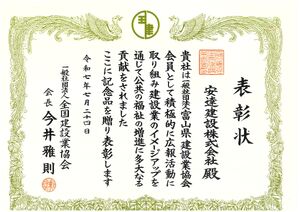 表彰状
安達建設株式会社 殿
貴社は一般社団法人富山県建設業協会
会員として積極的に広報活動に
取り組み建設業のイメージアップを
通じて公共の福祉の増進に多大なる
貢献をされました
ここに記念品を贈り表彰します
令和七年七月二十四日
一般社団法人全国建設業協会
会長 今井雅則